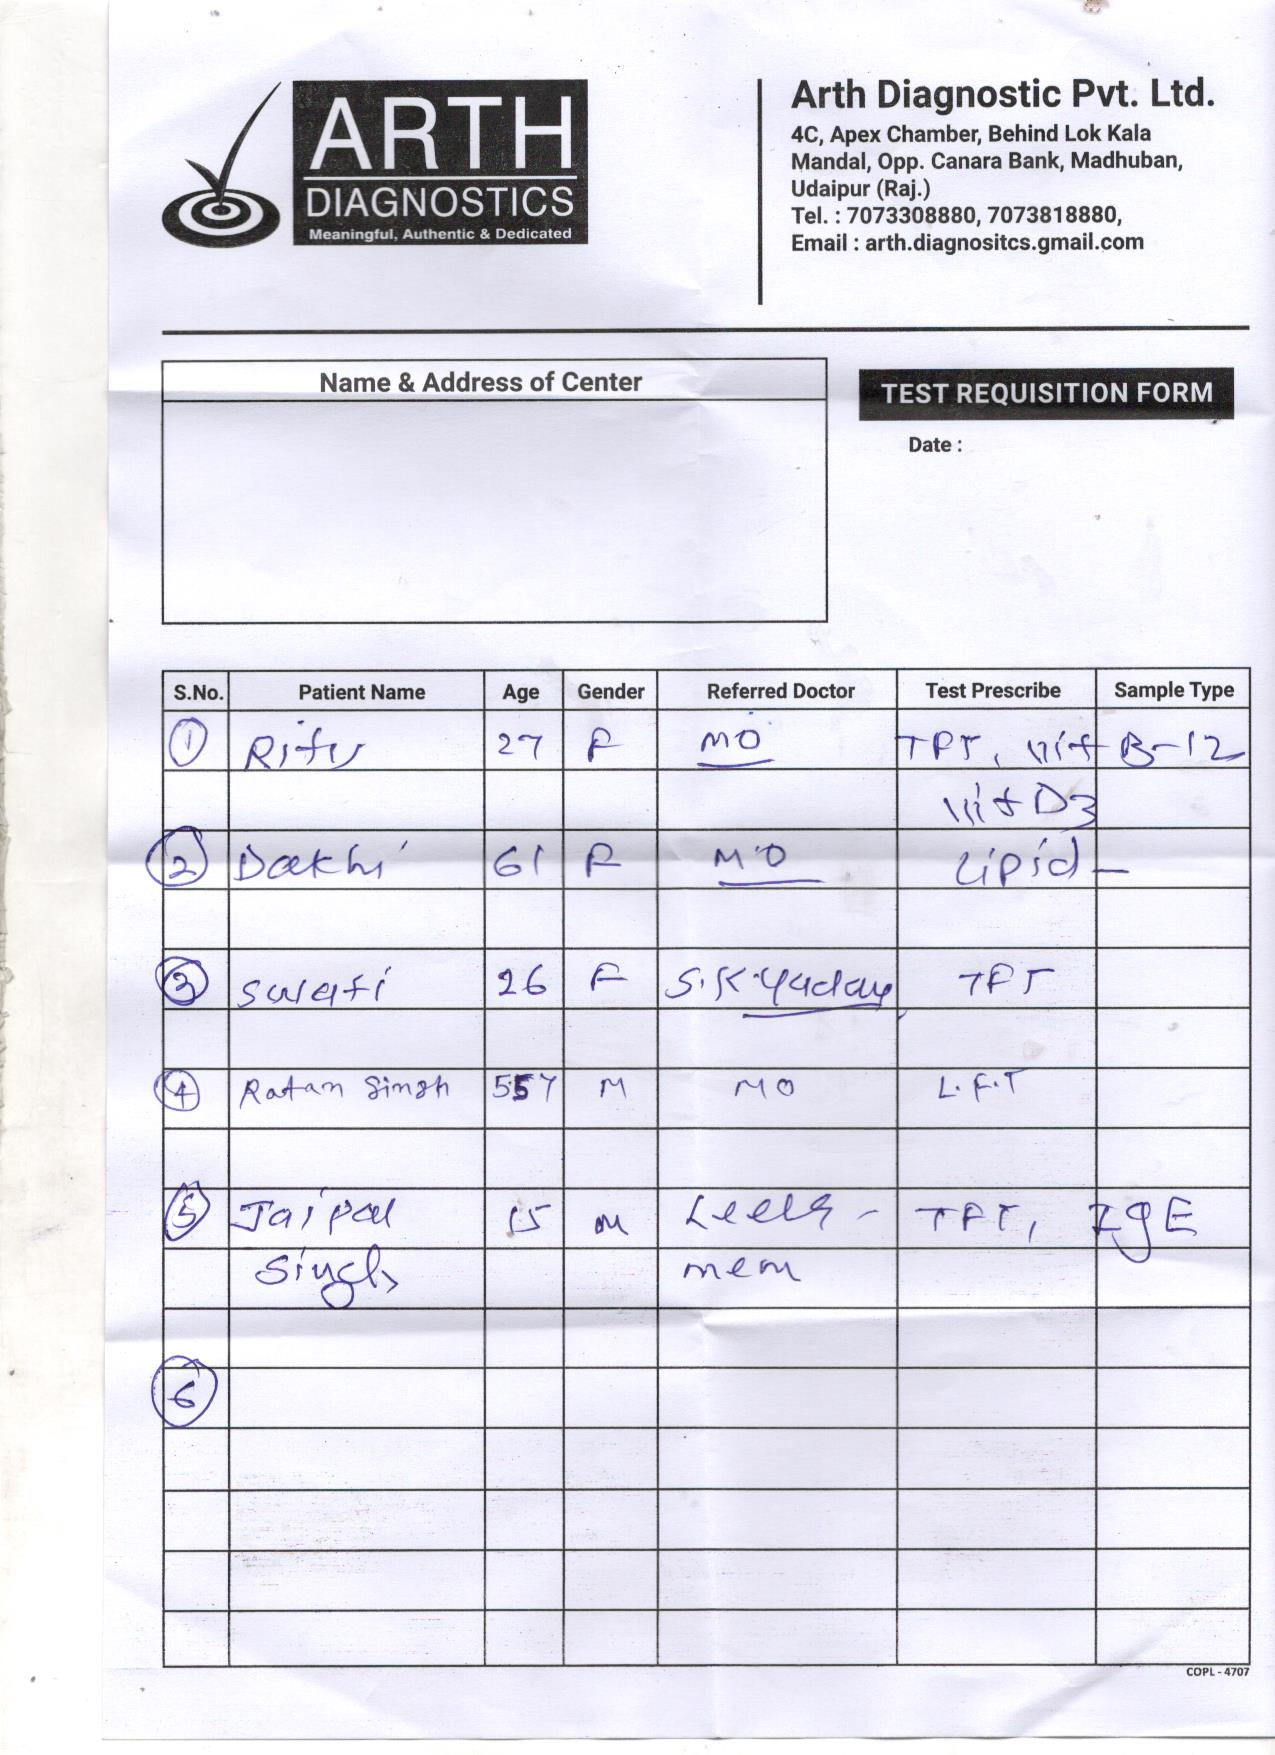 ARTH
DIAGNOSTICS
Meaningful, Authentic & Dedicated
Arth Diagnostic Pvt. Ltd.
4C, Apex Chamber, Behind Lok Kala
Mandal, Opp. Canara Bank, Madhuban,
Udaipur (Raj.)
Tel. : 7073308880, 7073818880,
Email : arth.diagnositcs.gmail.com
Name & Address of Center
TEST REQUISITION FORM
Date :
S.No. Patient Name Age Gender Referred Doctor Test Prescribe Sample Type
1 Ritu 27 F MO TFT, Vit B-12
Vit D3
2 Dakhi 61 F MO Lipid -
3 Swati 26 F S.K Yadav TFT
4 Ratan Singh M MO L.F.T
5 Jaipal 15 M Leela - TFT, IgE
Singh mem
6
COPL - 4707